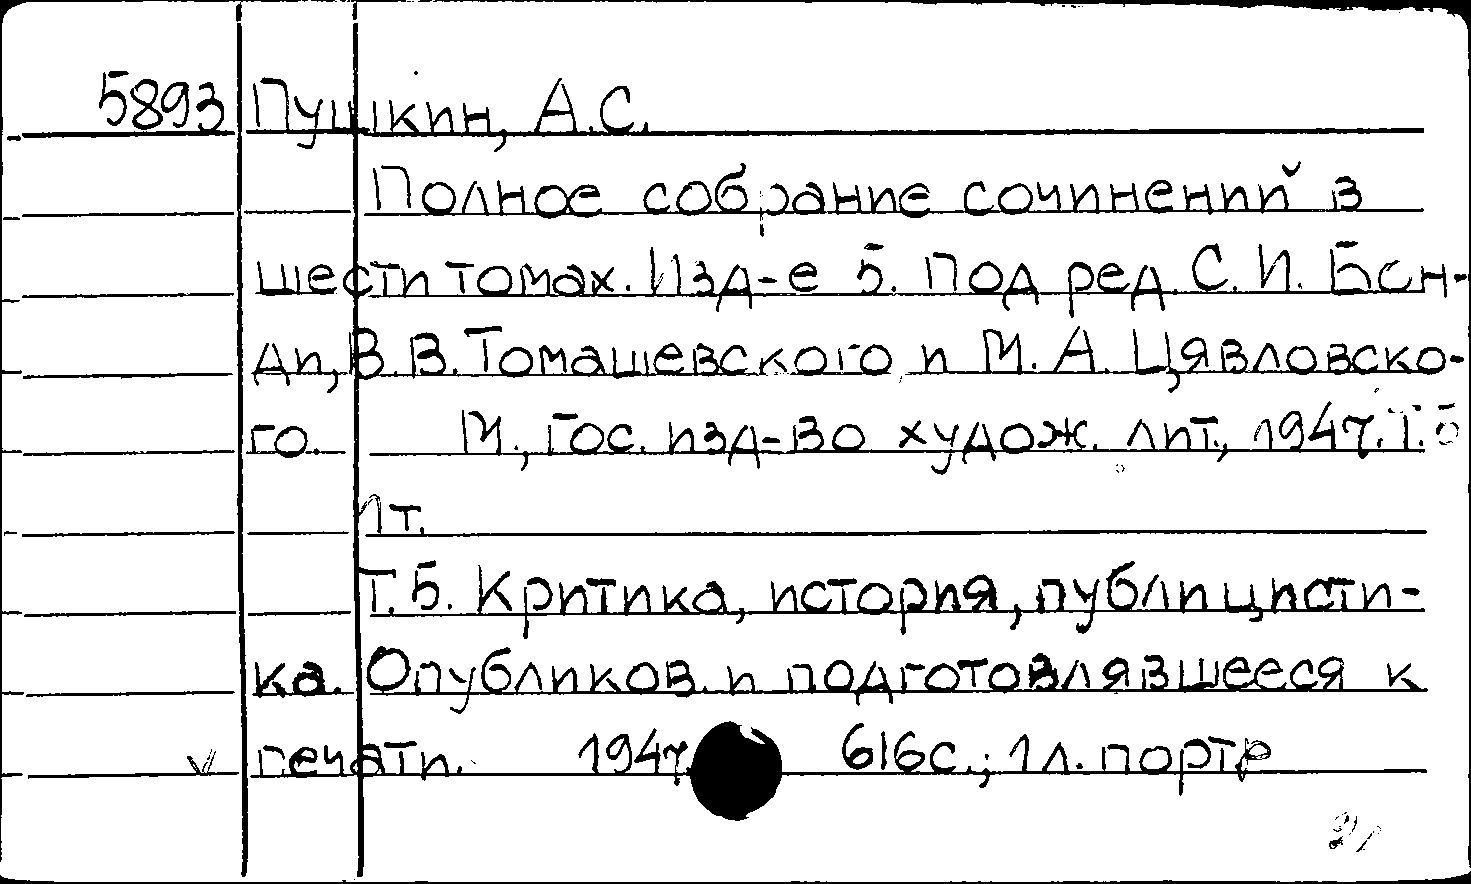 5893 Пушкин, А.С.
Полное собрание сочинений в
шести томах. Изд-е 5. Под ред. С. И. Бон-
ди, В.В. Томашевского и М. А. Цявловско-
го. М., Гос. изд-во худож. лит., 1947. Т. 5
1 т.
Т. 5. Критика, история, публицисти-
ка. Опубликов. и подготовлявшееся к
печати. 1947. 616с.; 1 л. портр